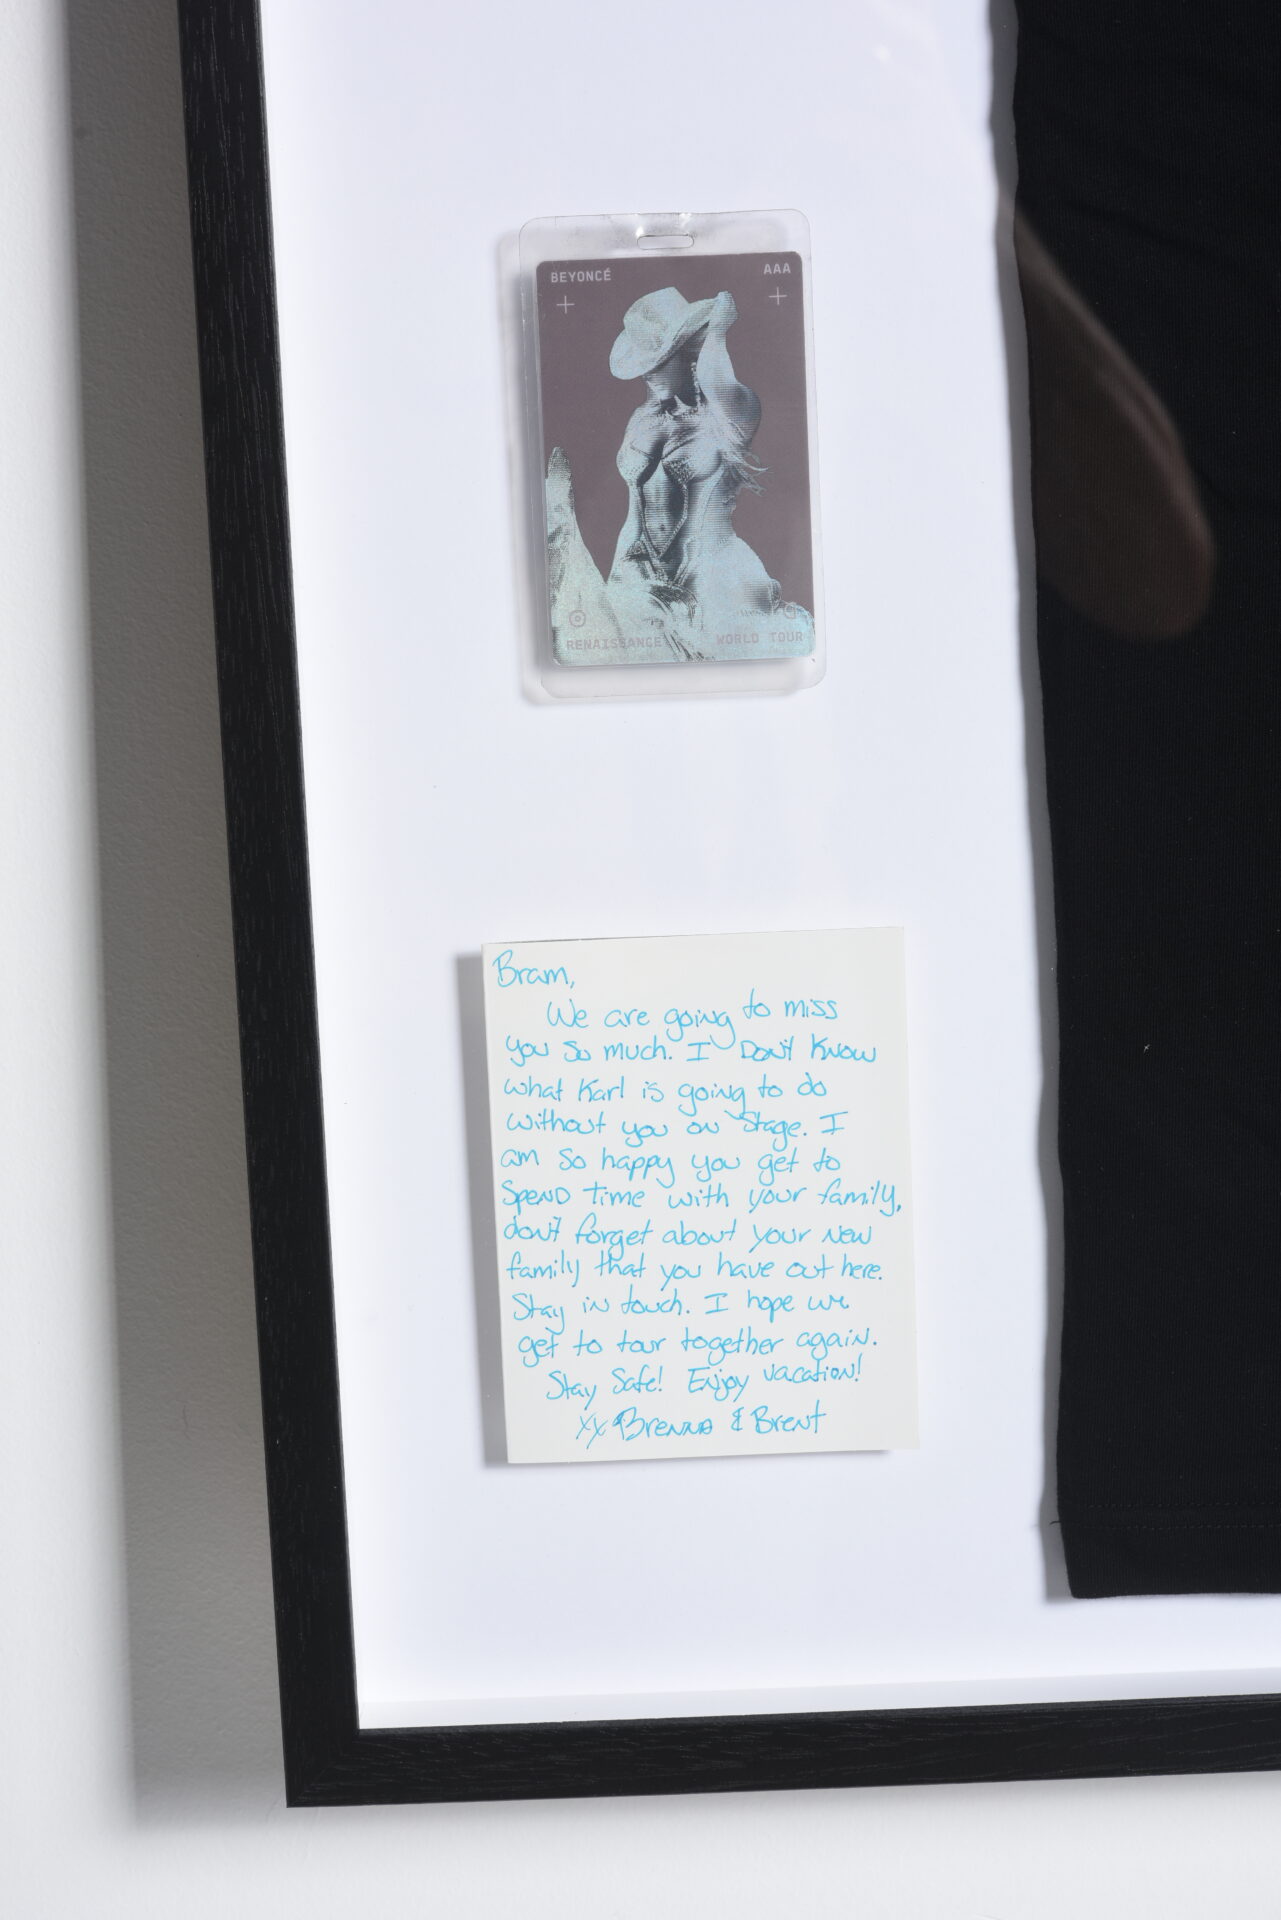 BEYONCÉ AAA
RENAISSANCE WORLD TOUR
Bram,
We are going to miss
you so much. I Don't Know
what Karl is going to do
without you on stage. I
am so happy you get to
spend time with your family,
don't forget about your new
family that you have out here.
Stay in touch. I hope we
get to tour together again.
Stay Safe! Enjoy vacation!
xx Brenna & Brent